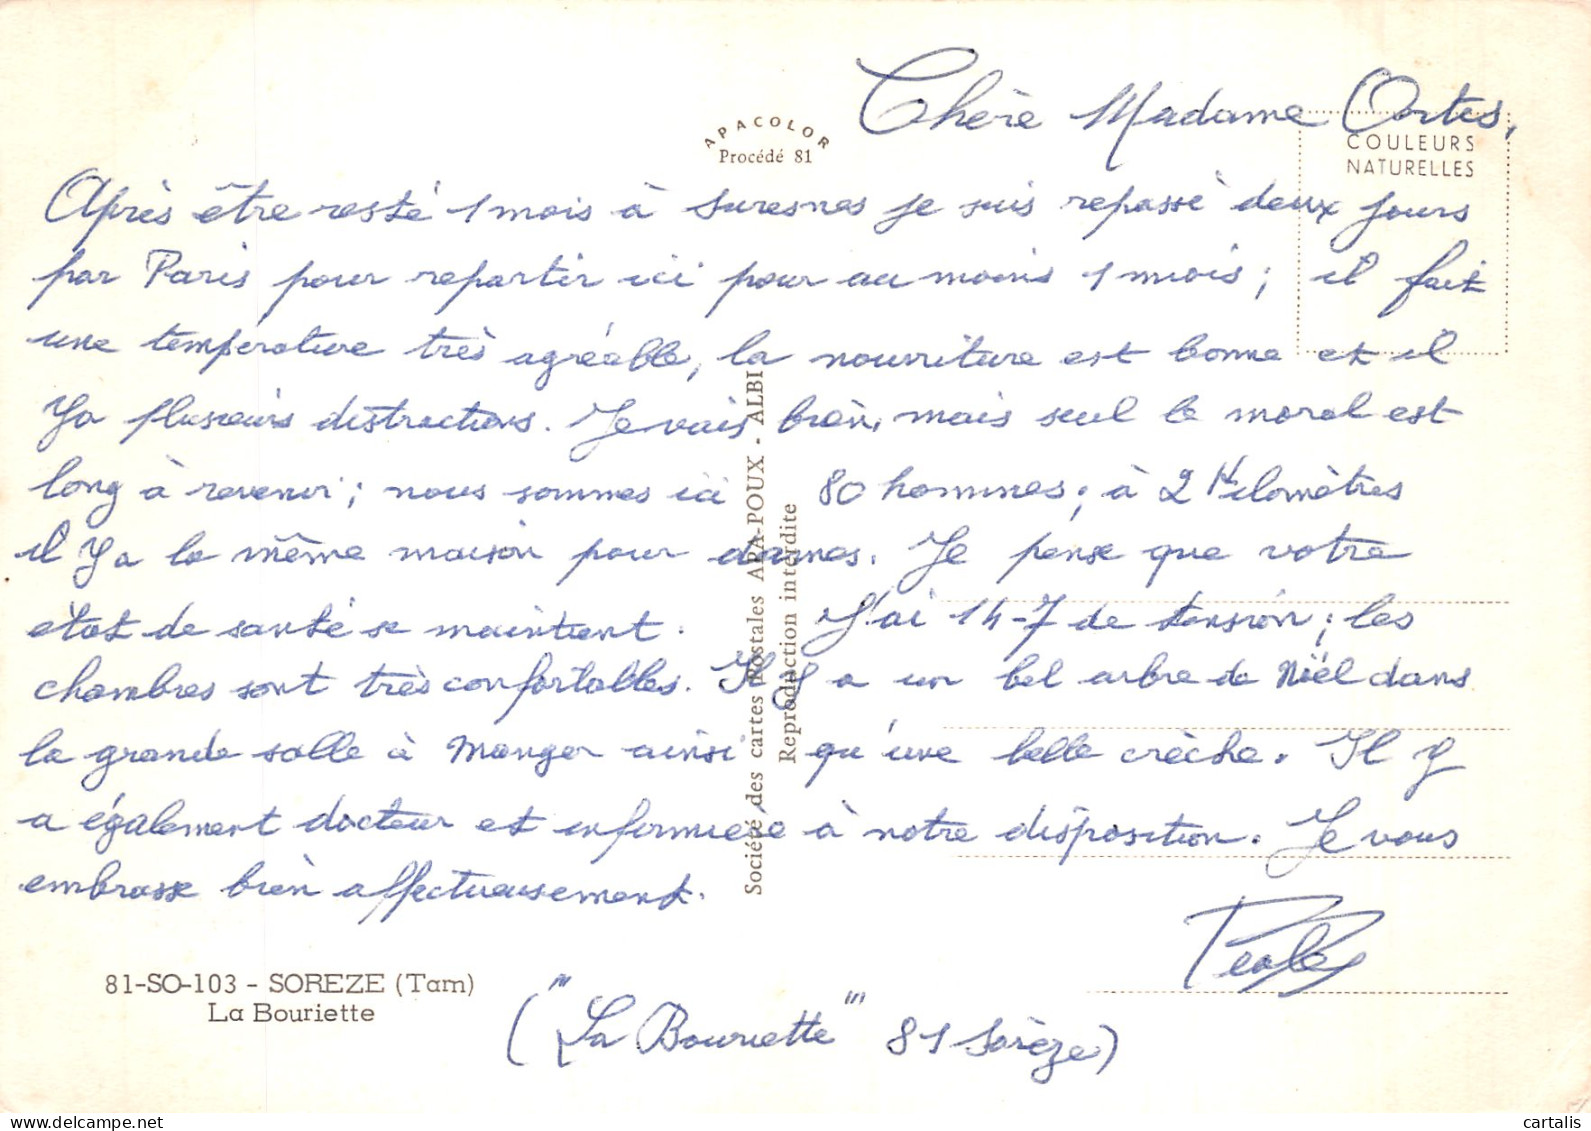 Chère Madame Ortes,
APACOLOR
Procédé 81
COULEURS
NATURELLES
Après être resté 1 mois à Suresnes je suis repassé deux jours
par Paris pour repartir ici pour au moins 1 mois; il fait
une température très agréable, la nourriture est bonne et il
y a plusieurs distractions. Je vais bien, mais seul le moral est
long à revenir; nous sommes ici 80 hommes; à 2 Kilomètres
il y a la même maison pour dames. Je pense que votre
état de santé se maintient. J'ai 14-7 de tension; les
chambres sont très confortables. Il y a un bel arbre de Noël dans
la grande salle à manger ainsi qu'une belle crèche. Il y
a également docteur et infirmière à notre disposition. Je vous
embrasse bien affectueusement.
Société des cartes postales APA-POUX - ALBI
Reproduction interdite
81-SO-103 - SOREZE (Tarn)
La Bouriette
("La Bouriette" 81 Sorèze)
cartalis